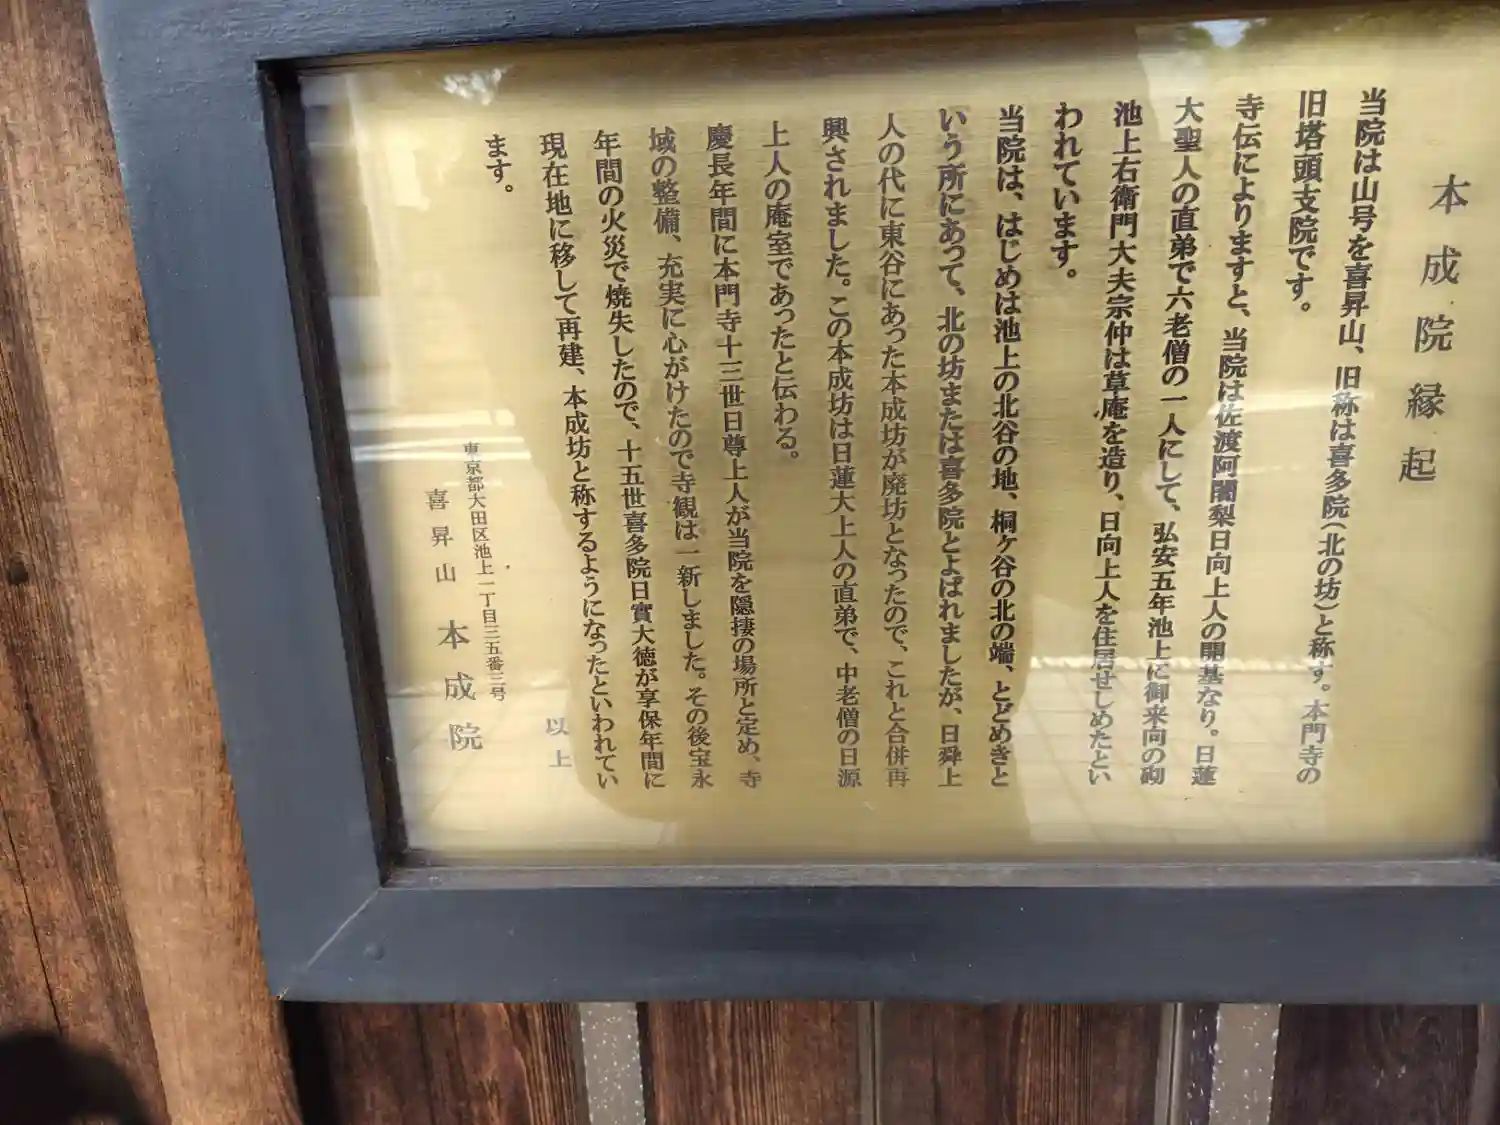 本成院縁起
当院は山号を喜昇山、旧称は喜多院(北の坊)と称す。本門寺の
旧塔頭支院です。
寺伝によりますと、当院は佐渡阿闍梨日向上人の開基なり。日蓮
大聖人の直弟で六老僧の一人にして、弘安五年池上に御来向の砌
池上右衛門大夫宗仲は草庵を造り、日向上人を住居せしめたとい
われています。
当院は、はじめは池上の北谷の地、桐ヶ谷の北の端、とどめきと
いう所にあって、北の坊または喜多院とよばれましたが、日舜上
人の代に東谷にあった本成坊が廃坊となったので、これと合併再
興されました。この本成坊は日蓮大上人の直弟で、中老僧の日源
上人の庵室であったと伝わる。
慶長年間に本門寺十三世日尊上人が当院を隠棲の場所と定め、寺
域の整備、充実に心がけたので寺観は一新しました。その後宝永
年間の火災で焼失したので、十五世喜多院日實大徳が享保年間に
現在地に移して再建、本成坊と称するようになったといわれてい
ます。
以上
東京都大田区池上一丁目三五番三号
喜昇山 本成院